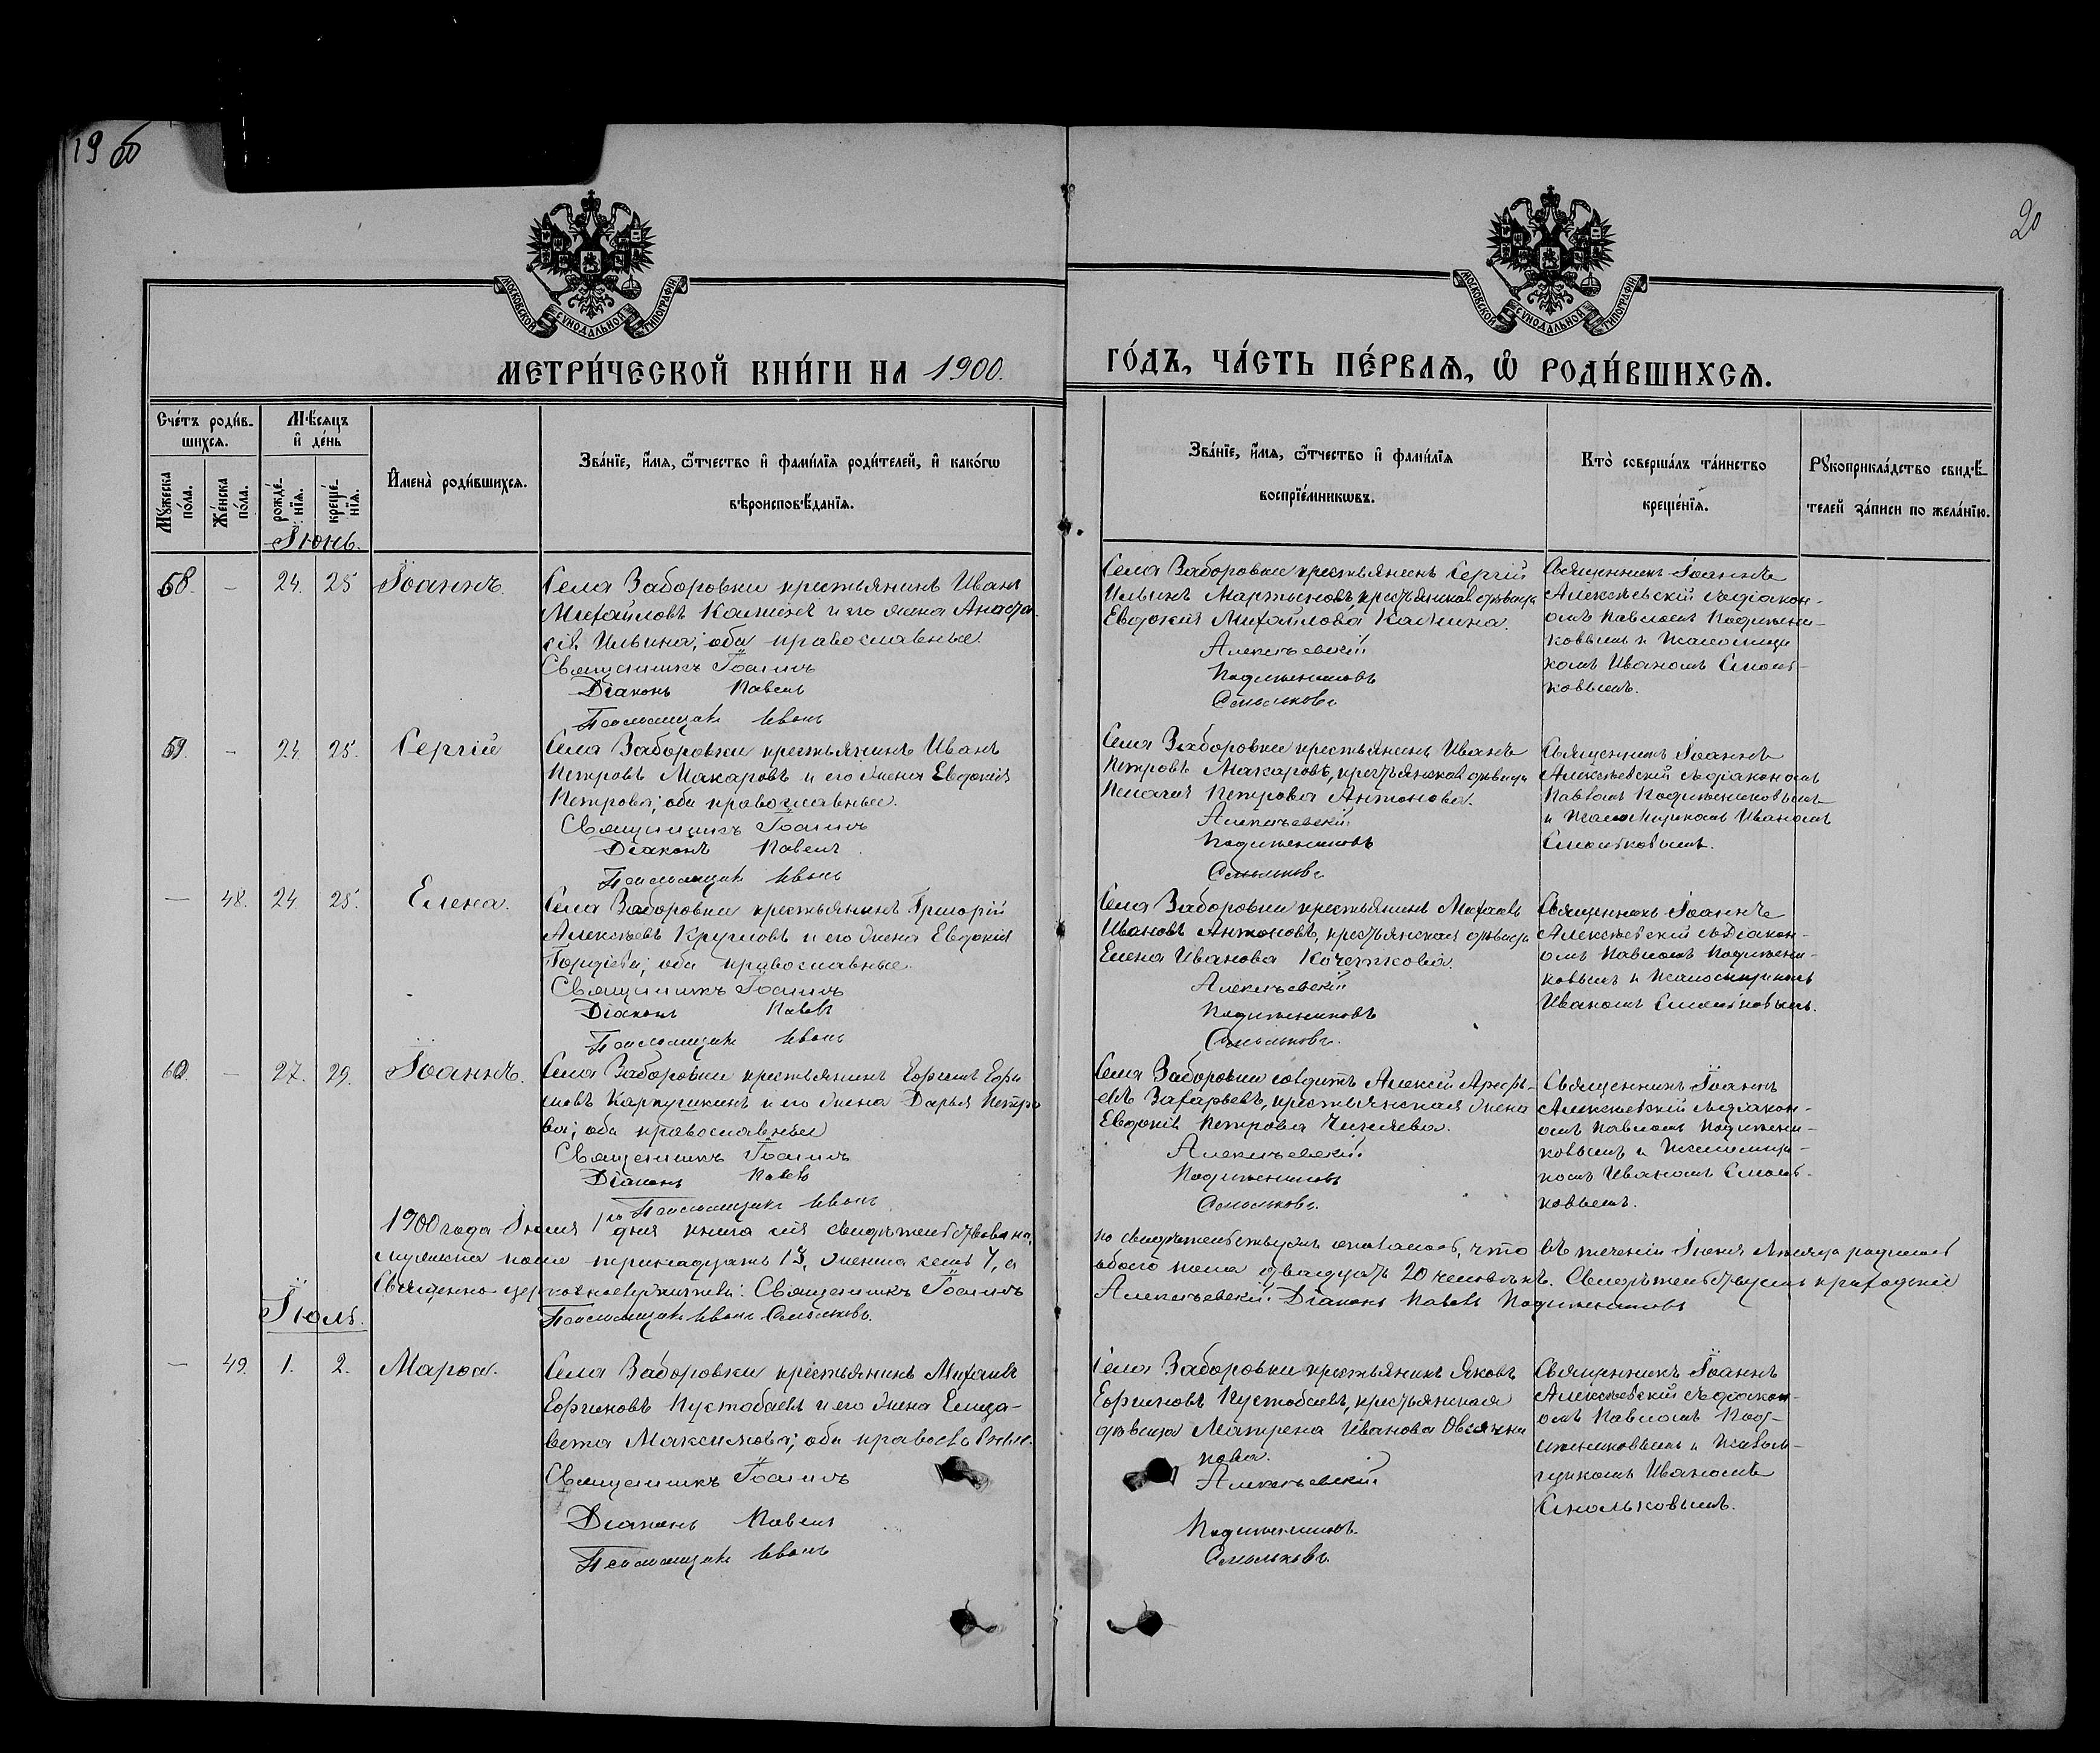 19 об
20
МОСКОВСКОЙ СѴНОДАЛЬНОЙ ТИПОГРАФІИ
МОСКОВСКОЙ СѴНОДАЛЬНОЙ ТИПОГРАФІИ
МЕТРИ́ЧЕСКОЙ КНИ́ГИ НА 1900.
ГО́ДЪ, ЧА́СТЬ ПЕ́РВАѦ, Ѡ҆ РОДИ́ВШИХСѦ.
Сче́тъ роди́в-
шихсѧ.
Мꙋ́жеска
по́ла.
Же́нска
по́ла.
Мѣ́сѧцъ
и҆ де́нь
рожде́-
нїѧ.
креще́-
нїѧ.
И҆мена̀ роди́вшихсѧ.
Зва́нїе, и҆́мѧ, ѻ҆́тчество и҆ фами́лїѧ роди́телей, и҆ како́гѡ
вѣроисповѣ́данїѧ.
Зва́нїе, и҆́мѧ, ѻ҆́тчество и҆ фами́лїѧ
воспрїе́мникѡвъ.
Кто̀ соверша́лъ та́инство
креще́нїѧ.
Рꙋкоприкла́дство свидѣ́-
телей за́писи по жела́нїю.
Іюнь.
58. - 24. 25 Іоаннъ.
Села Заборовки крестьянинъ Иванъ
Михайловъ Калинъ и его жена Анаста-
сія Ильина; оба православные.
Священникъ Іоаннъ
Діаконъ Павелъ
Псаломщикъ Иванъ
Села Заборовки крестьянинъ Сергій
Ильинъ Мартыновъ, крестьянская дѣвица
Евдокія Михайлова Калина.
Алексѣевскій
Подлѣсниковъ
Смольковъ
Священникъ Іоаннъ
Алексѣевскій съ діакон-
омъ Павломъ
и Псаломщи
комъ Иваномъ Смоль-
ковымъ.
59. - 24. 25. Сергій
Села Заборовки крестьянинъ Иванъ
Петровъ Макаровъ и его жена Евдокія
Петрова; оба православные.
Священникъ Іоаннъ
Діаконъ Павелъ
Псаломщикъ Иванъ
Села Заборовки крестьянинъ Иванъ
Петровъ Макаровъ, крестьянская дѣвица
Пелагія Петрова Антонова.
Алексѣевскій
Смольковъ
Священникъ Іоаннъ
Алексѣевскій съ діакономъ
Павломъ
и Псаломщикомъ Иваномъ
Смольковымъ.
— 48. 24. 25. Елена.
Села Заборовки крестьянинъ Григорій
Алексѣевъ Кругловъ и его жена Евдокія
Гордѣева; оба православные.
Священникъ Іоаннъ
Діаконъ Павелъ
Псаломщикъ Иванъ
Села Заборовки крестьянинъ Михаилъ
Ивановъ Антоновъ, крестьянская дѣвица
Елена Иванова Кочеткова.
Алексѣевскій
Смольковъ.
Священникъ Іоаннъ
Алексѣевскій съ Діакон-
омъ Павломъ
и Псаломщикомъ
Иваномъ Смольковымъ.
60. - 27. 29. Іоаннъ.
Села Заборовки крестьянинъ Ефимъ Ефи
мовъ Карпушкинъ и его жена Дарья Петро
ва; оба православные
Священникъ Іоаннъ
Діаконъ Павелъ
Псаломщикъ Иванъ
Села Заборовки солдатъ Алексій Арефь-
евъ Захарьевъ, крестьянская жена
Евдокія Петрова
Алексѣевскій
Смольковъ.
Священникъ Іоаннъ
Алексѣевскій съ діакон-
омъ Павломъ
и Псаломщи-
комъ Иваномъ Смоль-
ковымъ.
1900 года Іюля 1го дня книга сія свидѣтельствована,
по свидѣтельству оказалось, что въ теченіи Іюня мѣсяца родилось
мужска пола тринадцать 13, женска семь 7, а
обоего пола двадцать 20 человѣкъ. Свидѣтельствуемъ приходскіе
Священно-церковнослужители: Священникъ Іоаннъ
Алексѣевскій. Діаконъ Павелъ
Псаломщикъ Иванъ Смольковъ.
Іюль.
— 49. 1. 2. Марѳа.
Села Заборовки крестьянинъ Михаилъ
Ефимовъ Пустобаевъ и его жена Елиза-
вета Максимова; оба православные.
Священникъ Іоаннъ
Діаконъ Павелъ
Псаломщикъ Иванъ
Села Заборовки крестьянинъ Яковъ
Ефимовъ Пустобаевъ, крестьянская
дѣвица Матрена Иванова Овсянни
кова.
Алексѣевскій
Смольковъ.
Священникъ Іоаннъ
Алексѣевскій съ діакон-
омъ Павломъ
и Псалом-
щикомъ Иваномъ
Смольковымъ.